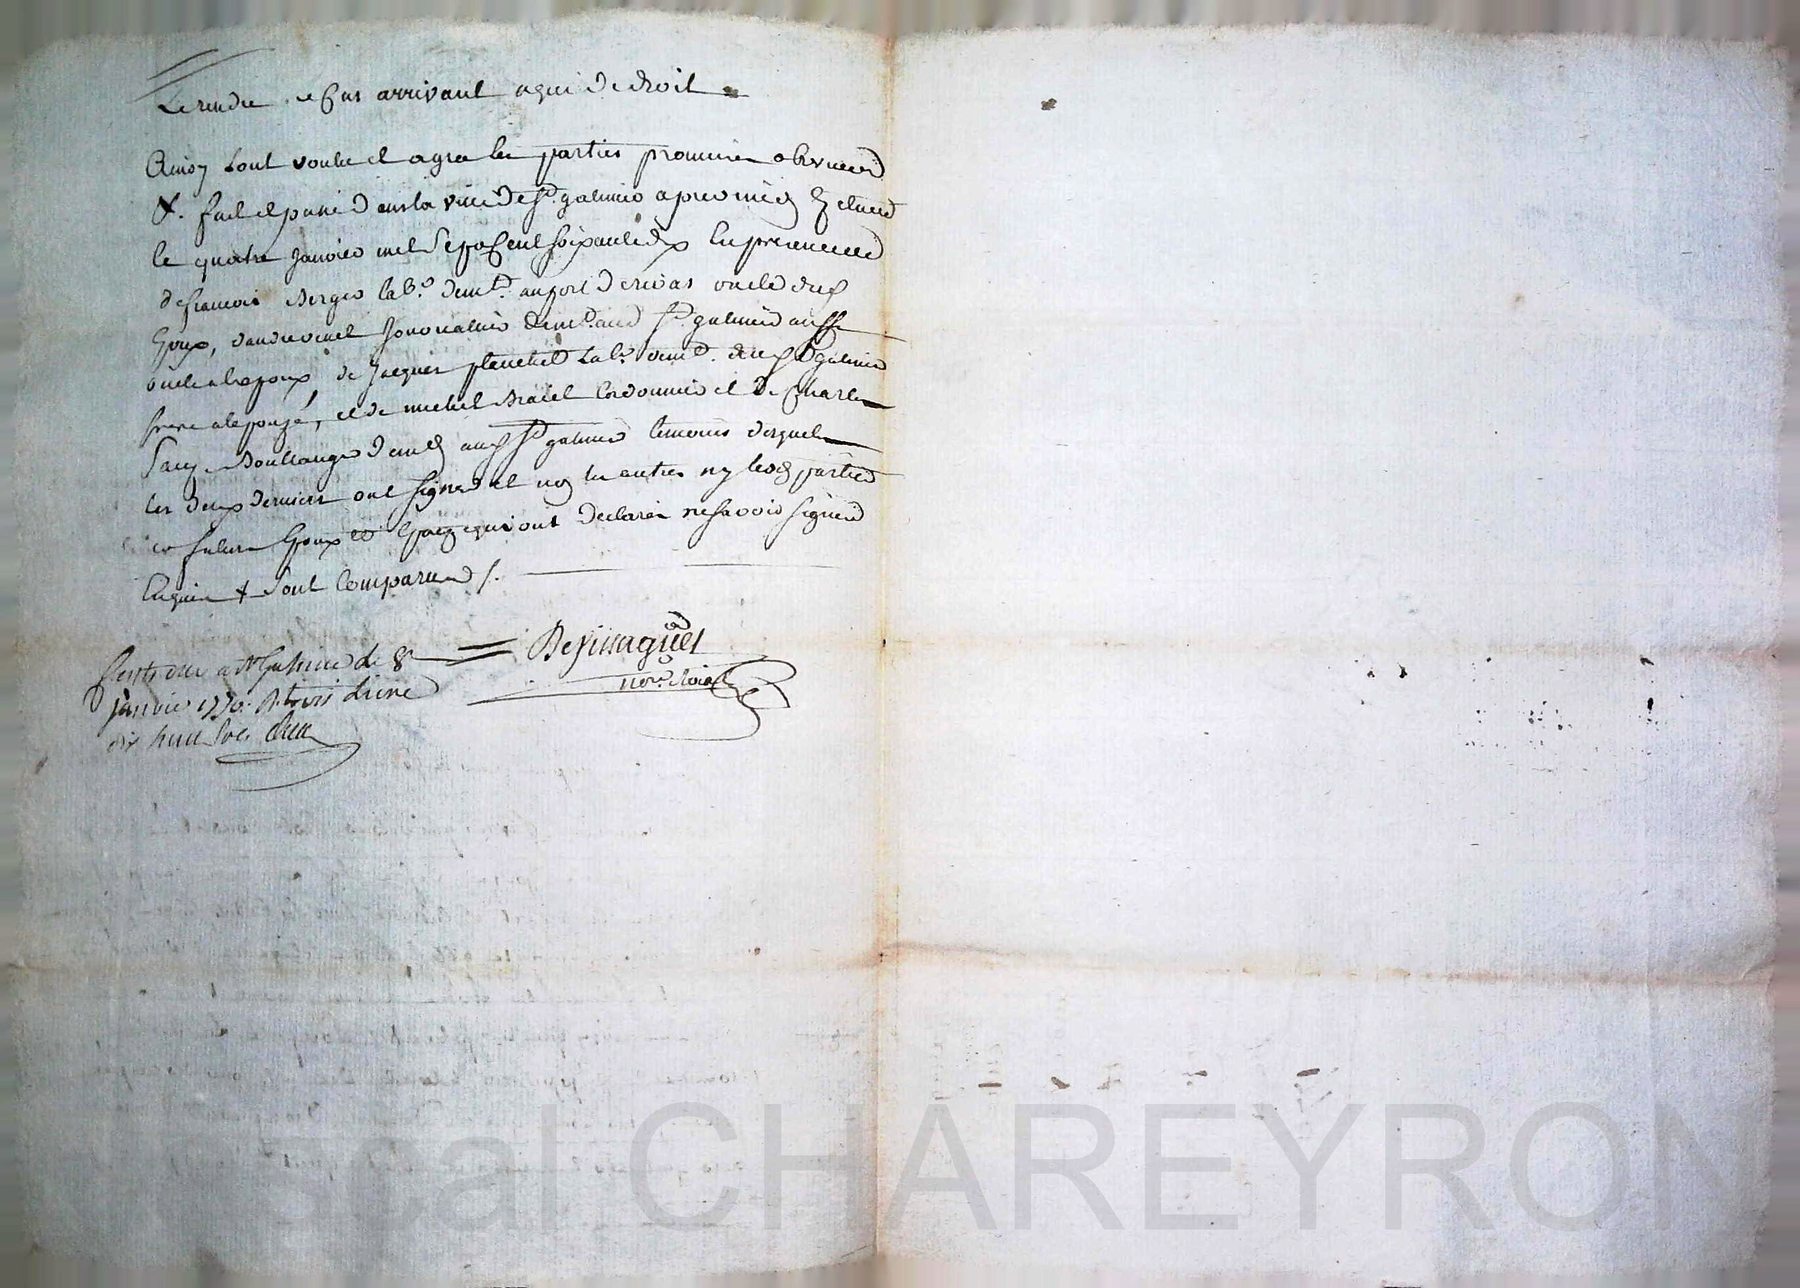 Le rendre le cas arrivant a qui de droit
Ainsy tout voulu et agréé les parties promis observer
&. fait et passé dans la ville de St. galmier apres midy En etude
le quatre Janvier mil Sept Cent soixante dix En presence
de francois Berger lab.r dem.t au port de rivas oncle dud
Epoux, d'andre vinel Jonvalier dem.t aud St. galmier aussy
oncle a lepoux, de Jacques planchet Lab.r dem.t aud St galmier
frere a lepouse, et de michel cordonnier et De Charles
Boullanger dem.t aud St galmier temoins desquels
les deux derniers ont signé et non les autres ny lesd parties
futurs Epoux et Epouze qui ont declaré ne savoir signer
Enquis & Sont Comparus /.
not.re Roial
Controllé a St Galmier le 8
janvier 1770. R. trois livres
dix huit Sols
scal CHAREYRON